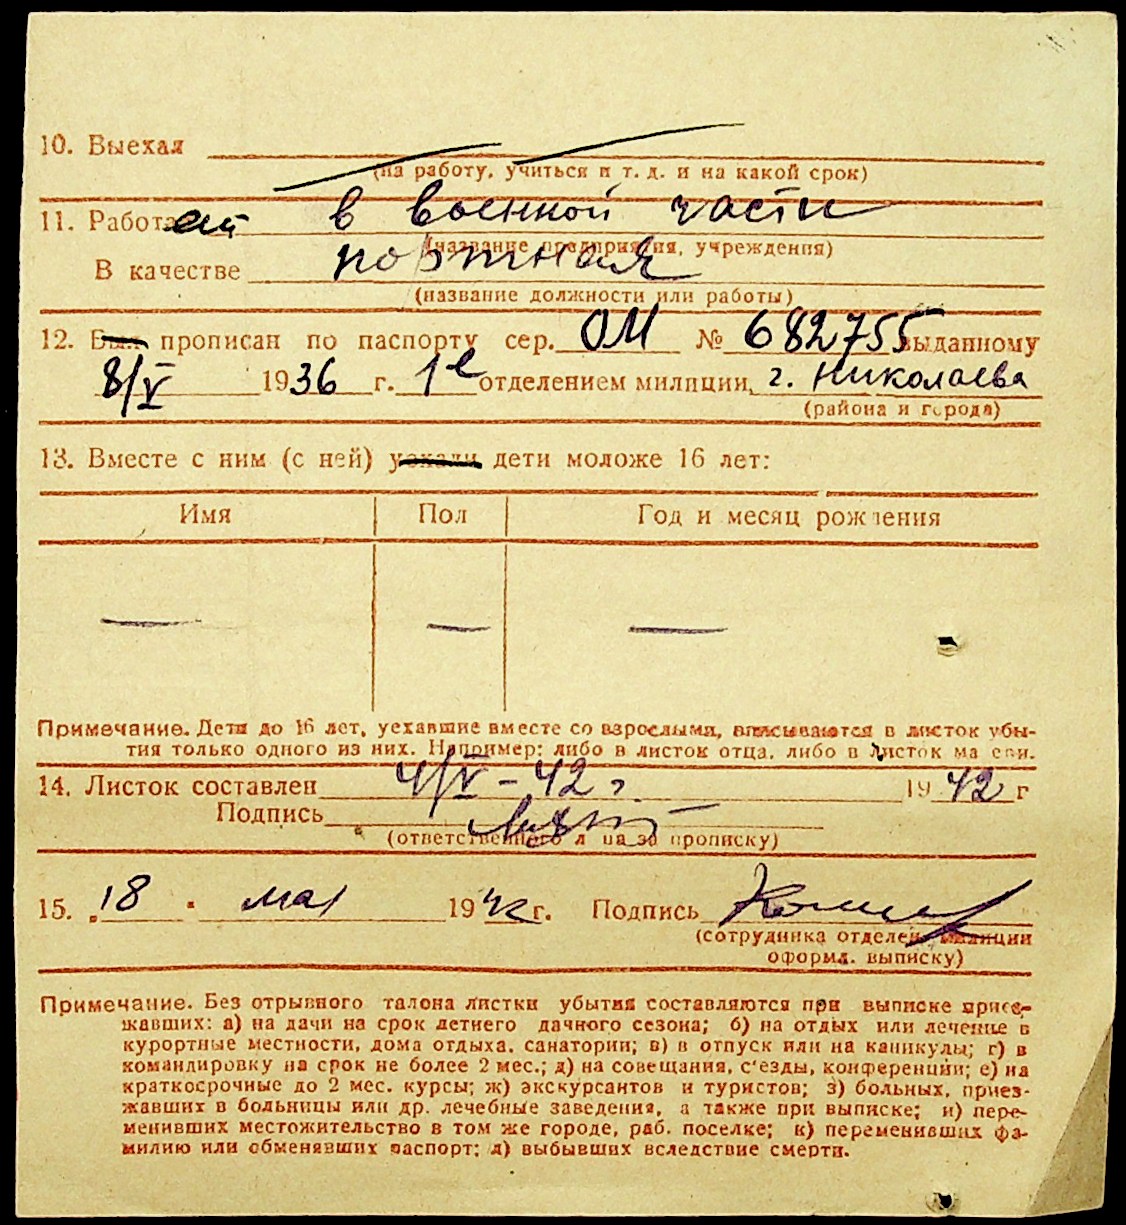 10. Выехал
(на работу, учиться и т. д. и на какой срок)
11. Работает в военной части
(название предприятия, учреждения)
В качестве портная
(название должности или работы)
12. Был прописан по паспорту сер. ОМ № 682755 выданному
8/V 1936 г. 1е отделением милиции, г. Николаева
(района и города)
13. Вместе с ним (с ней) уехали дети моложе 16 лет:
Имя Пол Год и месяц рождения
— — —
Примечание. Дети до 16 лет, уехавшие вместе со взрослыми, вписываются в листок убы-
тия только одного из них. Например: либо в листок отца, либо в листок матери.
14. Листок составлен 4/V – 42 г 1942 г
Подпись
(ответственного лица за прописку)
15. „18" мая 1942 г. Подпись
(сотрудника отделен. милиции
оформл. выписку)
Примечание. Без отрывного талона листки убытия составляются при выписке приез-
жавших: а) на дачи на срок летнего дачного сезона; б) на отдых или лечение в
курортные местности, дома отдыха, санатории; в) в отпуск или на каникулы; г) в
командировку на срок не более 2 мес.; д) на совещания, с'езды, конференции; е) на
краткосрочные до 2 мес. курсы; ж) экскурсантов и туристов; з) больных, приез-
жавших в больницы или др. лечебные заведения, а также при выписке; и) пере-
менивших местожительство в том же городе, раб. поселке; к) переменивших фа-
милию или обменявших паспорт; л) выбывших вследствие смерти.